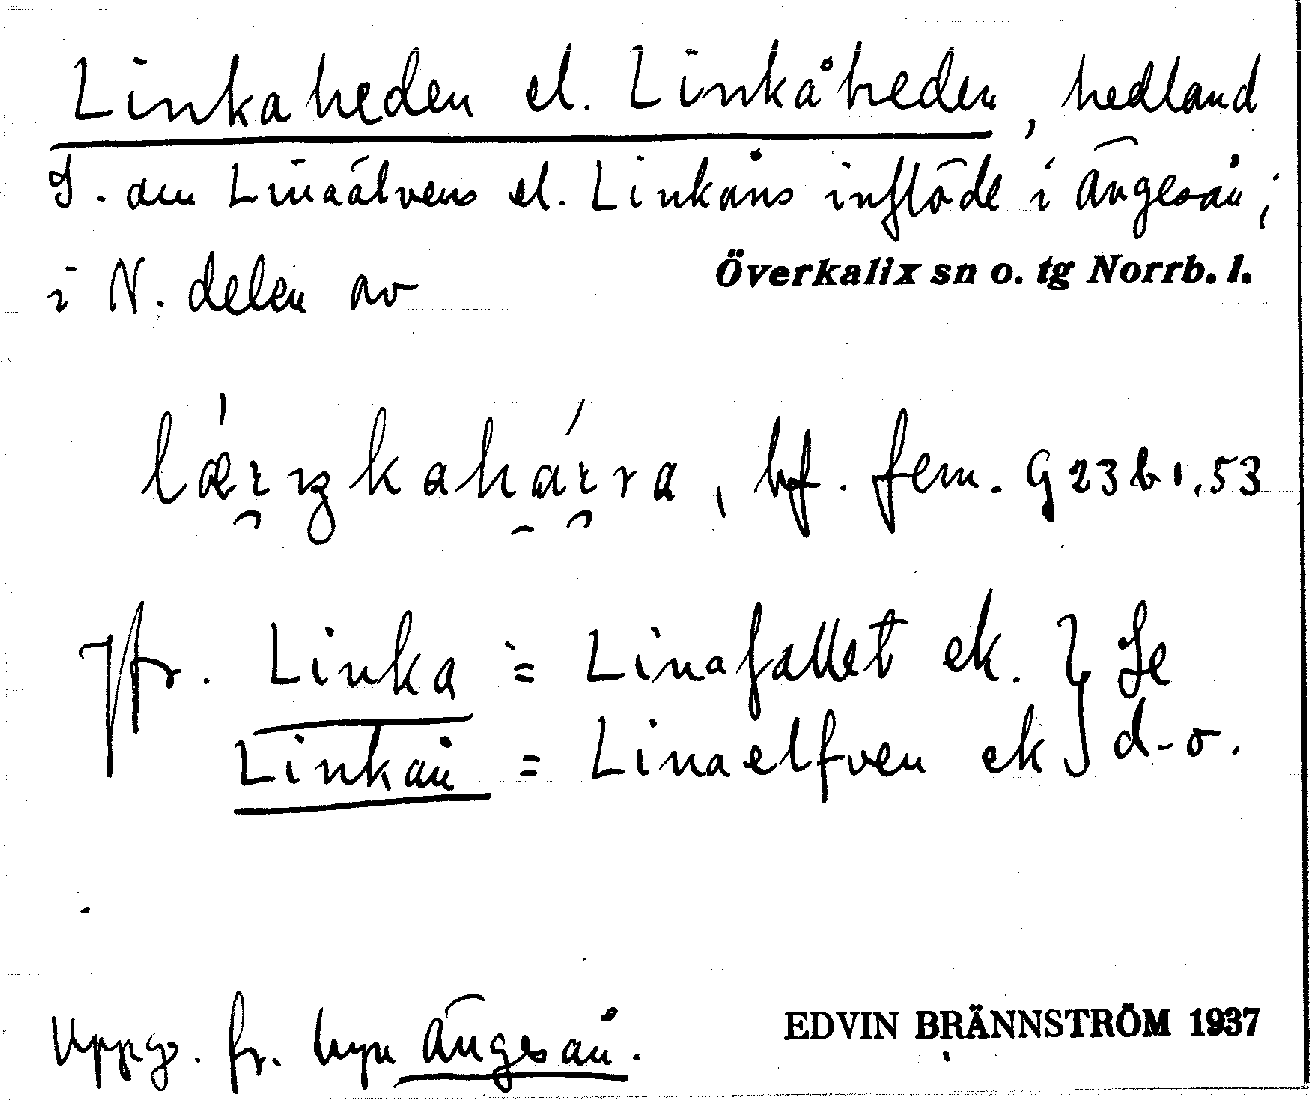 Linkaheden el. Linkåheden, hedland
S. om Linaälvens el. Linkåns inflöde i Ängesån;
i N. delen av Överkalix sn o. tg Norrb. l.
bf. fem. G 23 b 1, 53
Jfr. Linka = Linafallet ek. } Se
Linkån = Linaelfven ek } d-o.
Uppg. fr. byn Ängesån.
EDVIN BRÄNNSTRÖM 1937